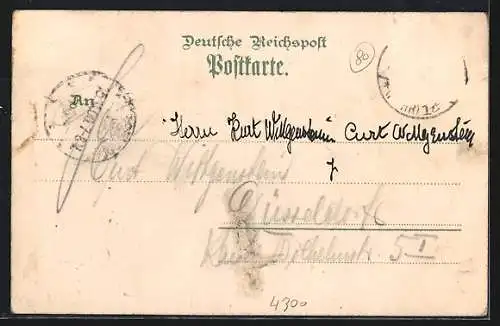 Deutsche Reichspost
Postkarte.
80
An
Herrn Kurt Wittgenstein Curt Wittgenstein
Curt Wittgenstein
Düsseldorf
Kaiser Wilhelmstr. 5 I
4300